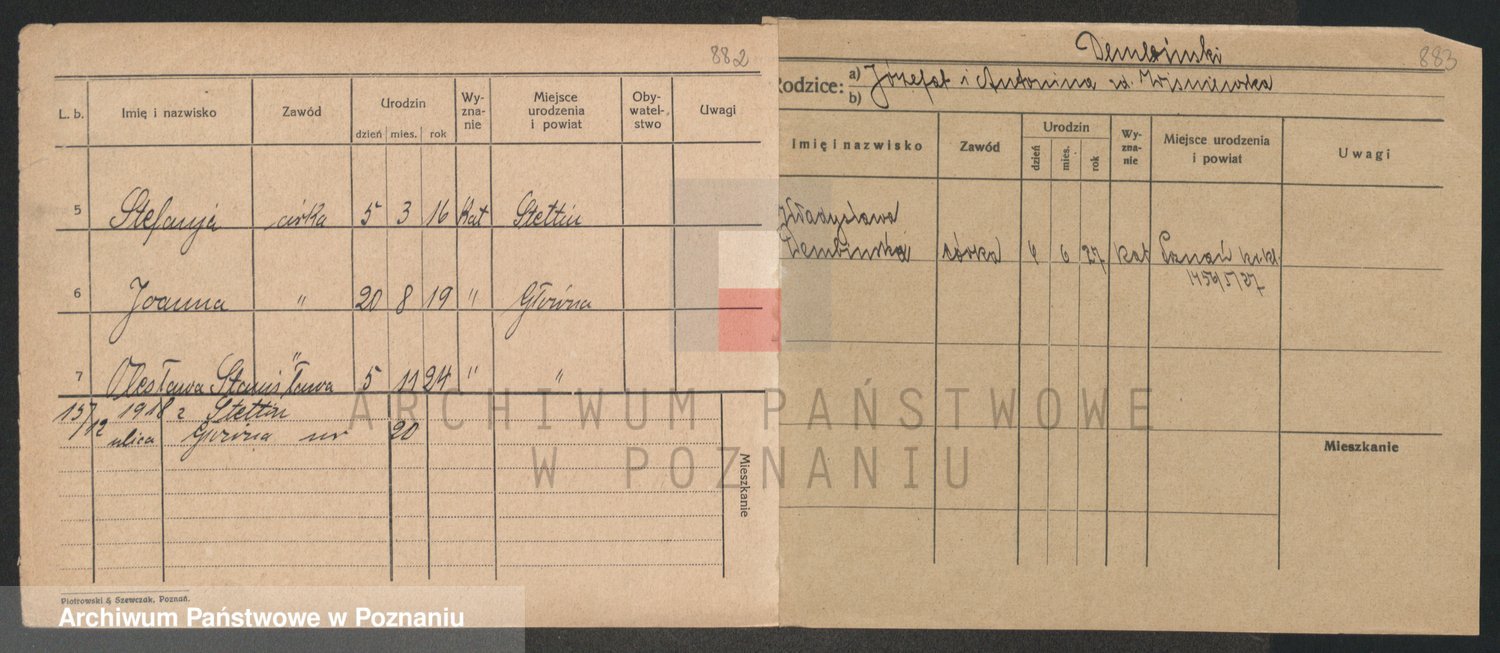 882
L. b. Imię i nazwisko Zawód Urodzin Wy-zna-nie Miejsce urodzenia i powiat Oby-watel-stwo Uwagi
dzień mies. rok
5 Stefanja córka 5 3 16 kat Stettin
6 Joanna " 20 8 19 " Główna
7 Czesława Stanisława " 5 11 24 " "
15/12 1918 z Stettin
ulica Główna nr 20
Mieszkanie
Piotrowski & Szewczak, Poznań.
Archiwum Państwowe w Poznaniu
883
Dembiński
Rodzice: a) Józefat i Antonina zd. Wiśniewska
b)
Imię i nazwisko Zawód Urodzin Wy-zna-nie Miejsce urodzenia i powiat Uwagi
dzień mies. rok
Władysława
Dembińska córka 4 6 27 kat Poznań
1456/5/27
Mieszkanie
ARCHIWUM PAŃSTWOWE
W POZNANIU